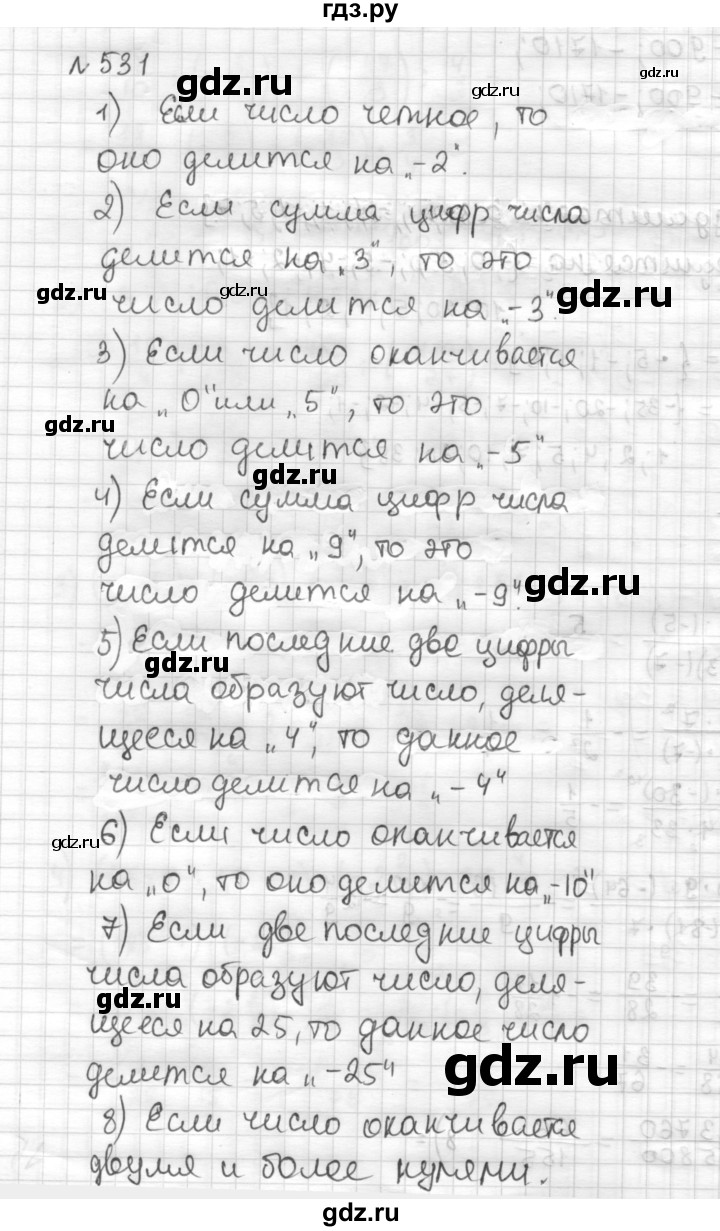 гдз.ру
№ 531
gdz.ru
gdz.ru
1) Если число четное, то
оно делится на „-2".
2) Если сумма цифр числа
делится на „3", то это
gdz.ru
gdz.ru
gdz.ru
число делится на „-3".
3) Если число оканчивается
на „0" или „5", то это
gdz.ru
число делится на „-5"
gdz.ru
4) Если сумма цифр числа
делится на „9", то это
число делится на „-9".
gdz.ru
5) Если последние две цифры
gdz.ru
числа образуют число, деля-
щееся на „4", то данное
число делится на „-4"
6) Если число оканчивается
gdz.ru
на „0", то оно делится на „-10"
7) Если две последние цифры
числа образуют число, деля-
gdz.ru
щееся на 25, то данное число
делится на „-25"
gdz.ru
8) Если число оканчивается
двумя и более нулями.
gdz.ru